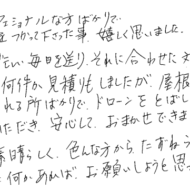 フェショナルな方ばかりで
をつかって下さった事、嬉しく思いました。
忙しい毎日を送り、それに合わせた
何件か見積りもしましたが、屋根
れる所ばかりで、ドローンをとばし
ただき、安心して、おまかせできま
素晴らしく、色んな方から、たずねら
に何かあれば、お願いしようと思